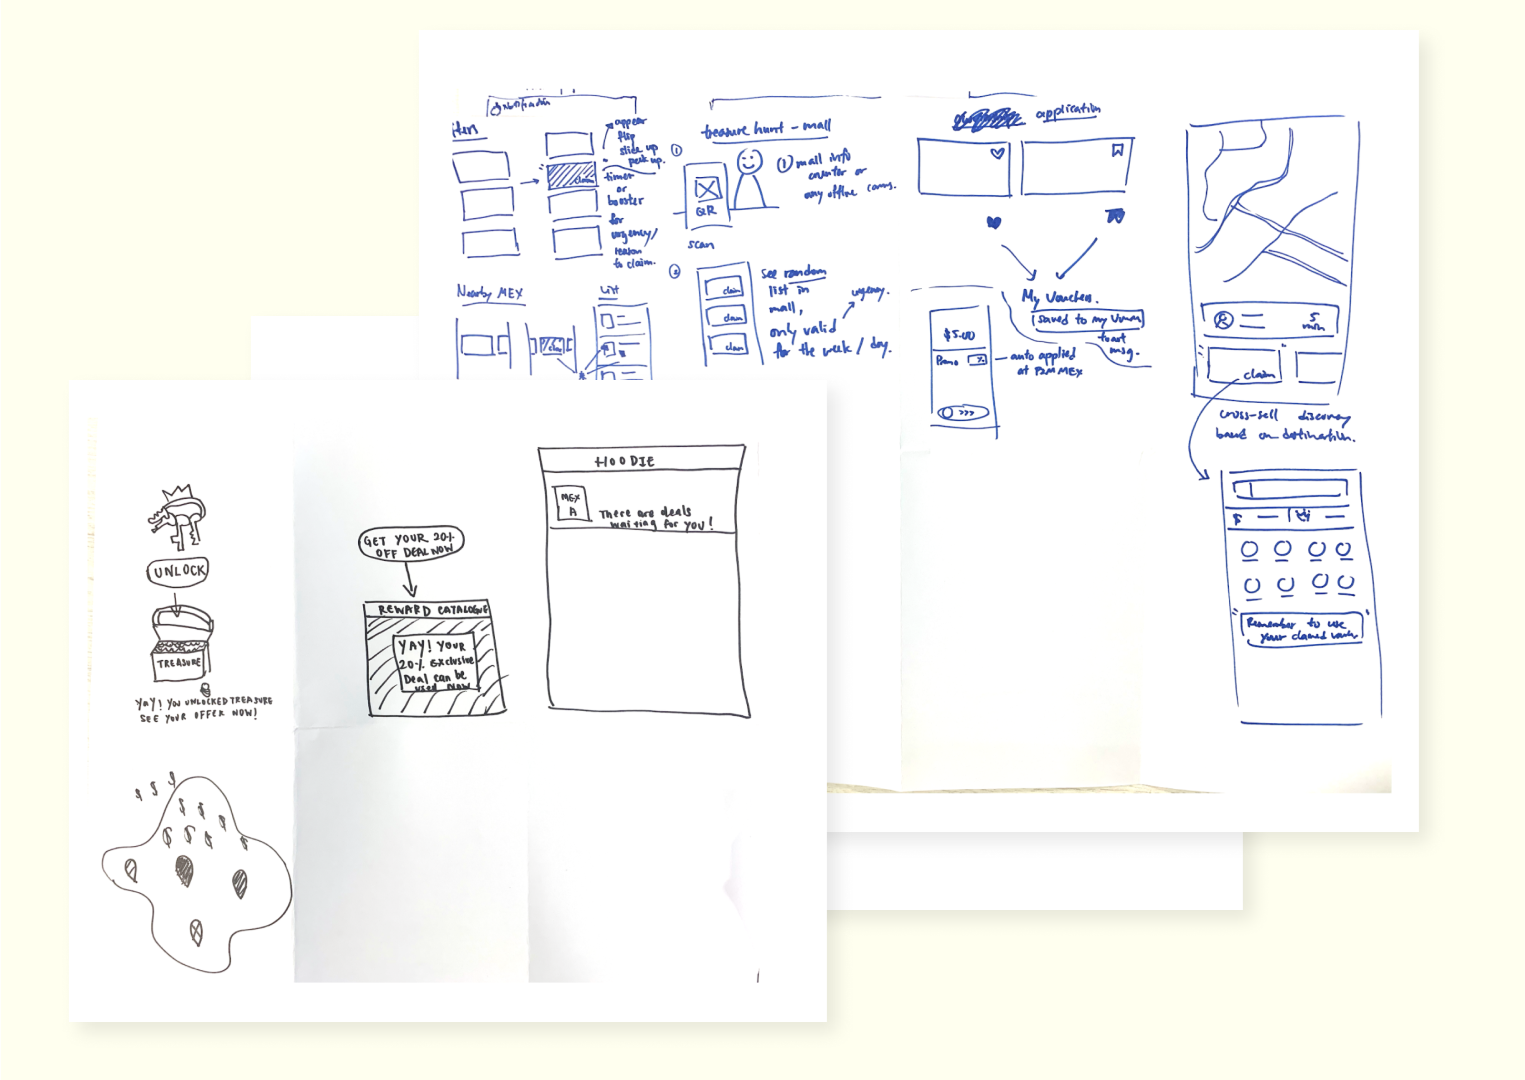 Notification
appear
flip
slide up
peek up.
claim
timer
or
booster
for
urgency/
reason
to claim.
Nearby MEX
List
claim
treasure hunt - mall
①
QR
scan
① mall info
counter or
any offline comms.
②
claim
claim
claim
see random
list in
mall,
only valid
for the week / day.
urgency.
application
My Vouchers.
saved to my
toast
msg.
$5.00
Promo
auto applied
at P2M MEX
>>>
5
min
claim
cross-sell discovery
based on destination.
Remember to use
your claimed
UNLOCK
TREASURE
YAY! YOU UNLOCKED TREASURE
SEE YOUR OFFER NOW!
GET YOUR 20%
OFF DEAL NOW
REWARD CATALOGUE
YAY! YOUR
20% Exclusive
Deal can be
used now
HOODIE
MEX
A
There are deals
waiting for you!